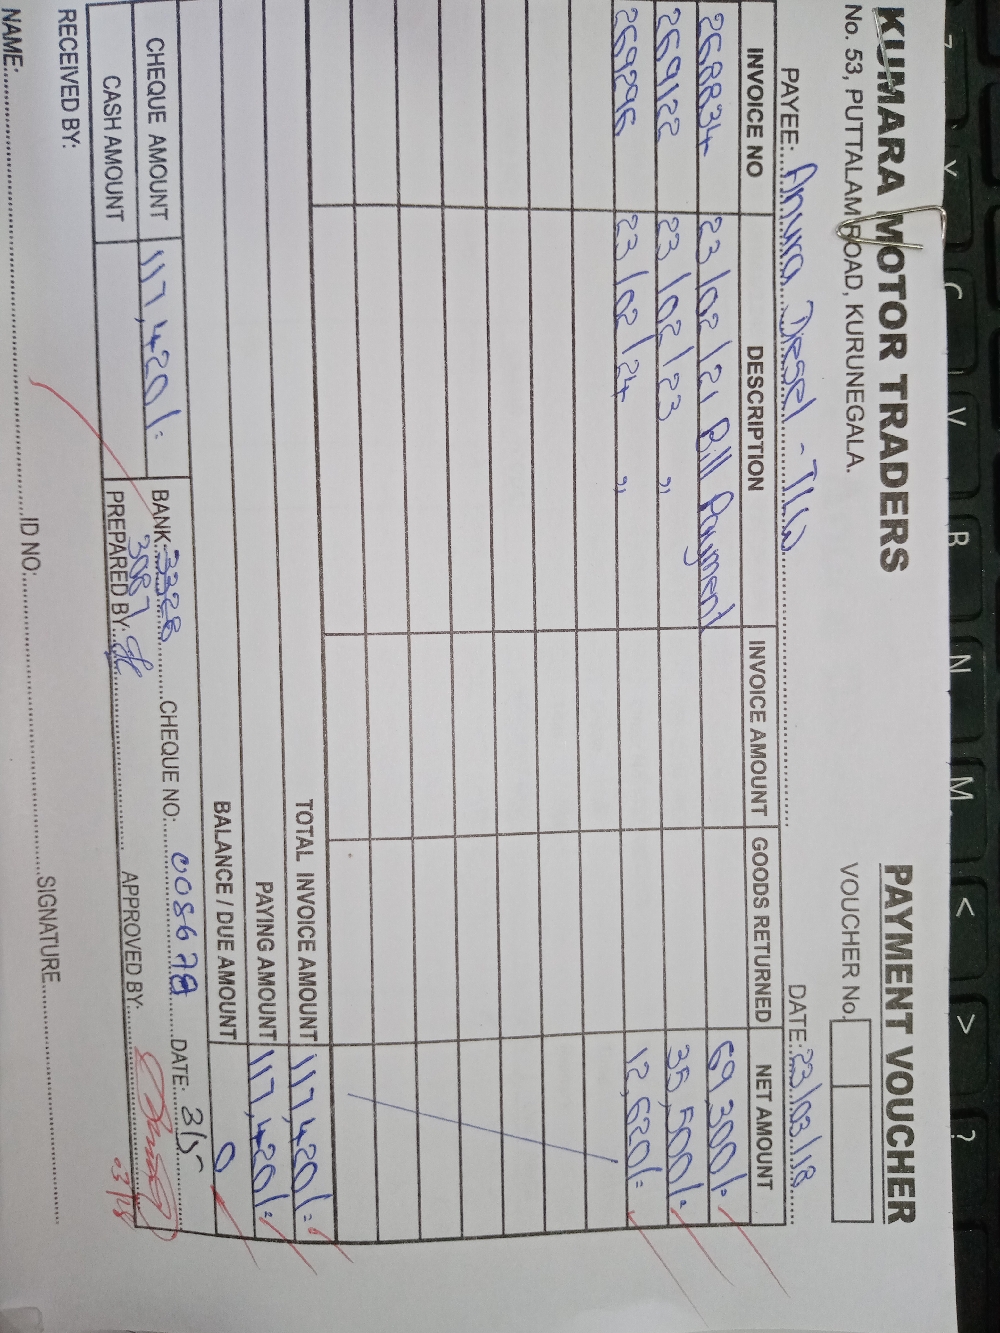 KUMARA MOTOR TRADERS
PAYMENT VOUCHER
No. 53, PUTTALAM ROAD, KURUNEGALA.
VOUCHER No.
PAYEE: Anura Diesel - DATE: 23/03/18
INVOICE NO DESCRIPTION INVOICE AMOUNT GOODS RETURNED NET AMOUNT
268834 23/02/21 Bill Payment 69,300/=
269122 23/02/23 " 35,500/=
269296 23/02/24 " 12,620/=
TOTAL INVOICE AMOUNT 117,420/=
PAYING AMOUNT 117,420/=
BALANCE / DUE AMOUNT 0
CHEQUE AMOUNT 117,420/= BANK: 3328 CHEQUE NO: 008678 DATE: 3/5
3087
CASH AMOUNT PREPARED BY: APPROVED BY:
03/18
RECEIVED BY:
NAME: ID NO: SIGNATURE
Y C V B N M < > ?